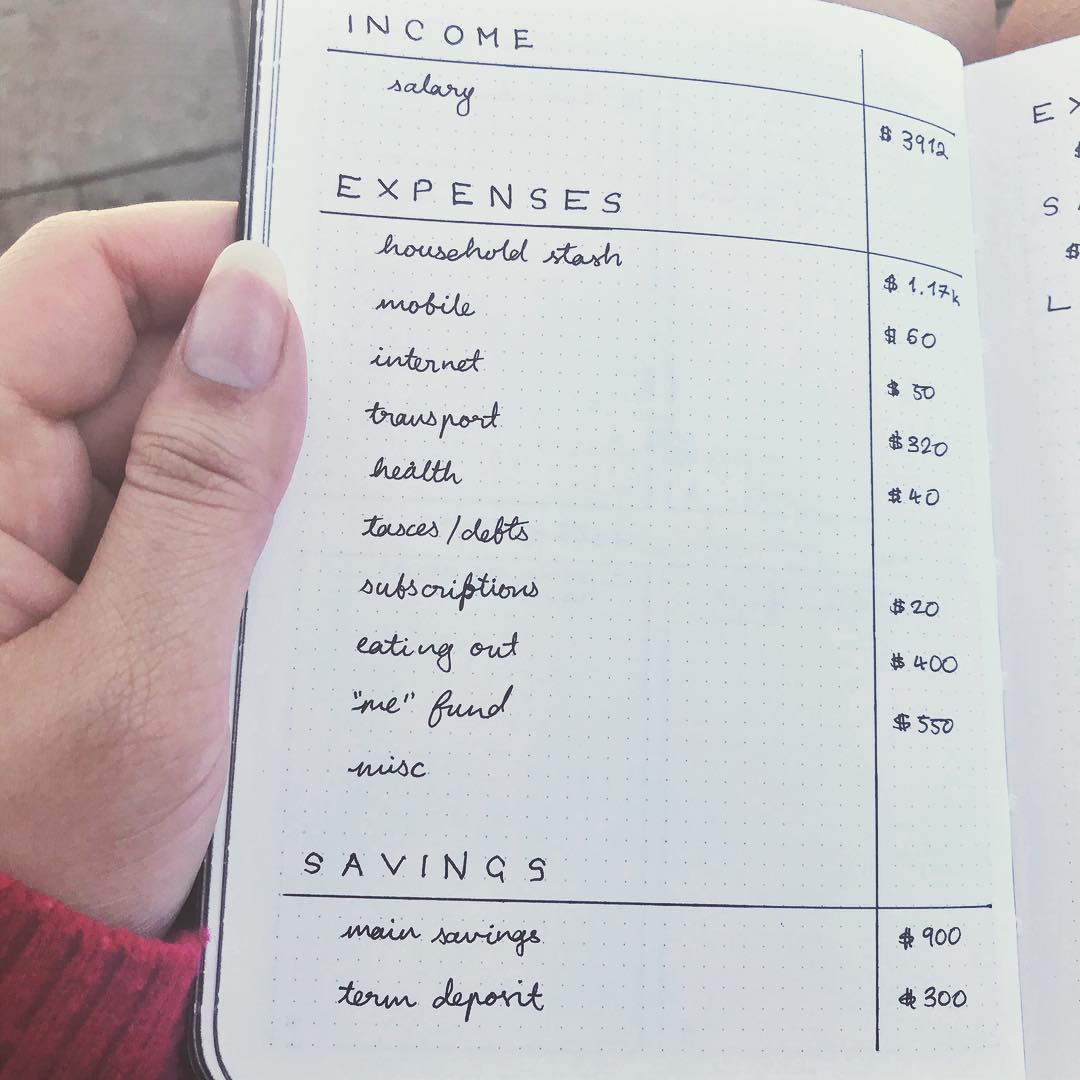 INCOME
salary $ 3912
EXPENSES
household stash $ 1.17k
mobile $ 60
internet $ 50
transport $320
health $ 40
tasces/debts
subscriptions $20
eating out $ 400
"me" fund $ 550
misc
SAVINGS
main savings $ 900
term deposit $ 300
EX
$
SA
$
L